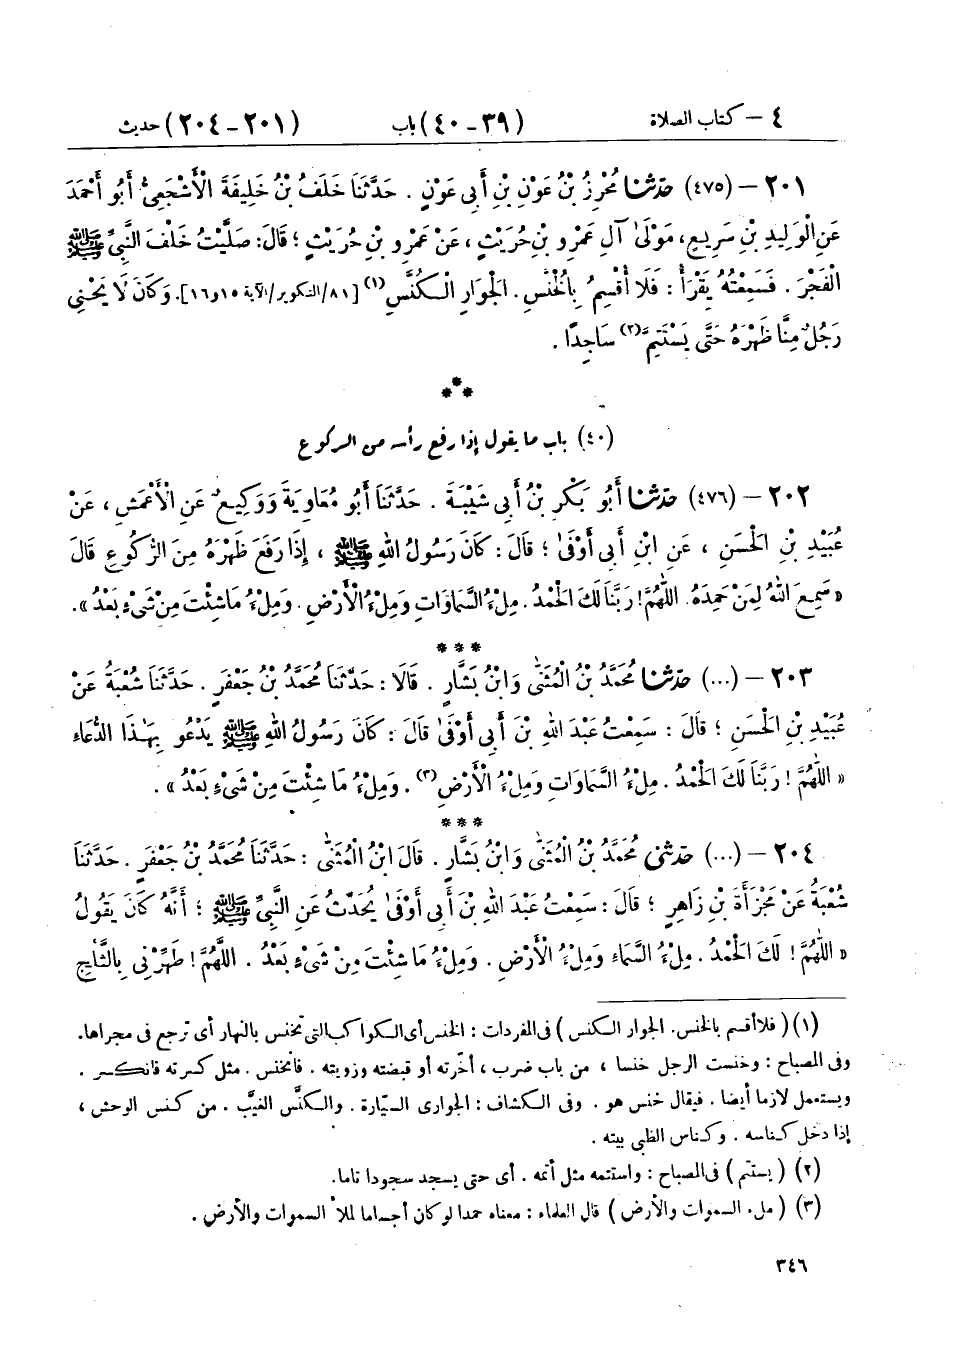 ٤ – كتاب الصلاة (٣٩ – ٤٠) باب (٢٠١ – ٢٠٤) حديث
٢٠١ – (٤٧٥) حَدَّثَنَا مُحْرِزُ بْنُ عَوْنِ بْنِ أَبِي عَوْنٍ . حَدَّثَنَا خَلَفُ بْنُ خَلِيفَةَ الْأَشْجَعِيُّ أَبُو أَحْمَدَ
عَنِ الْوَلِيدِ بْنِ سَرِيعٍ، مَوْلَىٰ آلِ عَمْرِو بْنِ حُرَيْثٍ، عَنْ عَمْرِو بْنِ حُرَيْثٍ؛ قَالَ: صَلَّيْتُ خَلْفَ النَّبِيِّ ﷺ
الْفَجْرَ . فَسَمِعْتُهُ يَقْرَأُ : فَلَا أُقْسِمُ بِالْخُنَّسِ . الْجَوَارِ الْكُنَّسِ(١) [٨١/التكوير/الآية ١٥ و١٦]. وَكَانَ لَا يَحْنِي
رَجُلٌ مِنَّا ظَهْرَهُ حَتَّى يَسْتَتِمَّ(٢) سَاجِدًا .
***
(٤٠) باب ما يقول إذا رفع رأسه من الركوع
٢٠٢ – (٤٧٦) حَدَّثَنَا أَبُو بَكْرِ بْنُ أَبِي شَيْبَةَ . حَدَّثَنَا أَبُو مُعَاوِيَةَ وَوَكِيعٌ عَنِ الْأَعْمَشِ ، عَنْ
عُبَيْدِ بْنِ الْحَسَنِ ، عَنِ ابْنِ أَبِي أَوْفَىٰ ؛ قَالَ : كَانَ رَسُولُ اللهِ ﷺ ، إِذَا رَفَعَ ظَهْرَهُ مِنَ الرُّكُوعِ قَالَ
« سَمِعَ اللهُ لِمَنْ حَمِدَهُ. اللّٰهُمَّ! رَبَّنَا لَكَ الْحَمْدُ. مِلْءُ السَّمَاوَاتِ وَمِلْءُ الْأَرْضِ. وَمِلْءُ مَا شِئْتَ مِنْ شَيْءٍ بَعْدُ ».
***
٢٠٣ – (...) حَدَّثَنَا مُحَمَّدُ بْنُ الْمُثَنَّىٰ وَابْنُ بَشَّارٍ . قَالَا : حَدَّثَنَا مُحَمَّدُ بْنُ جَعْفَرٍ . حَدَّثَنَا شُعْبَةُ عَنْ
عُبَيْدِ بْنِ الْحَسَنِ ؛ قَالَ : سَمِعْتُ عَبْدَ اللهِ بْنَ أَبِي أَوْفَىٰ قَالَ : كَانَ رَسُولُ اللهِ ﷺ يَدْعُو بِهَـٰذَا الدُّعَاءِ
« اللّٰهُمَّ ! رَبَّنَا لَكَ الْحَمْدُ . مِلْءُ السَّمَاوَاتِ وَمِلْءُ الْأَرْضِ(٣) . وَمِلْءُ مَا شِئْتَ مِنْ شَيْءٍ بَعْدُ » .
***
٢٠٤ – (...) حَدَّثَنِي مُحَمَّدُ بْنُ الْمُثَنَّىٰ وَابْنُ بَشَّارٍ . قَالَ ابْنُ الْمُثَنَّىٰ : حَدَّثَنَا مُحَمَّدُ بْنُ جَعْفَرٍ . حَدَّثَنَا
شُعْبَةُ عَنْ مَجْزَأَةَ بْنِ زَاهِرٍ ؛ قَالَ : سَمِعْتُ عَبْدَ اللهِ بْنَ أَبِي أَوْفَىٰ يُحَدِّثُ عَنِ النَّبِيِّ ﷺ ؛ أَنَّهُ كَانَ يَقُولُ
« اللّٰهُمَّ! لَكَ الْحَمْدُ . مِلْءُ السَّمَاءِ وَمِلْءُ الْأَرْضِ . وَمِلْءُ مَا شِئْتَ مِنْ شَيْءٍ بَعْدُ . اللّٰهُمَّ! طَهِّرْنِي بِالثَّلْجِ
(١) ( فلا أقسم بالخنس. الجوار الكنس ) في المفردات : الخنس أي الكواكب التي تخنس بالنهار أي ترجع في مجراها.
وفي المصباح : وخنست الرجل خنسا ، من باب ضرب ، أخّرته أو قبضته وزويته . فانخنس . مثل كسرته فانكسر .
ويستعمل لازما أيضا . فيقال خنس هو . وفي الكشاف : الجواري السيّارة . والكنَّس الغيَّب . من كنس الوحش ،
إذا دخل كناسه . وكناس الظبي بيته .
(٢) ( يستتم ) في المصباح : واستتمه مثل أتمه . أي حتى يسجد سجودا تاما.
(٣) ( ملء السموات والأرض ) قال العلماء : معناه حمدا لو كان أجساما لملأ السموات والأرض .
٣٤٦